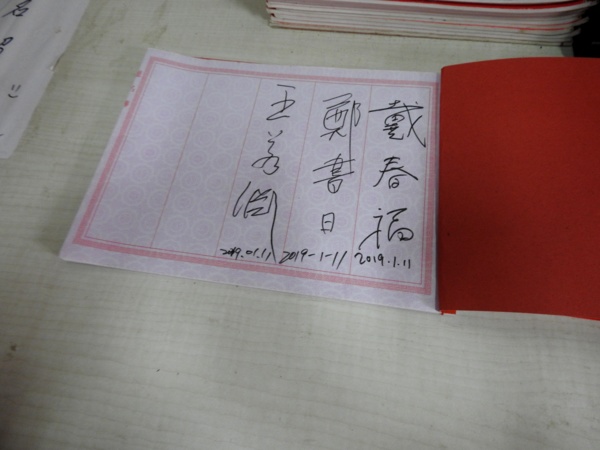 戴春福
2019.1.11
鄭書日
2019-1-11
王若闻
2019.01.11